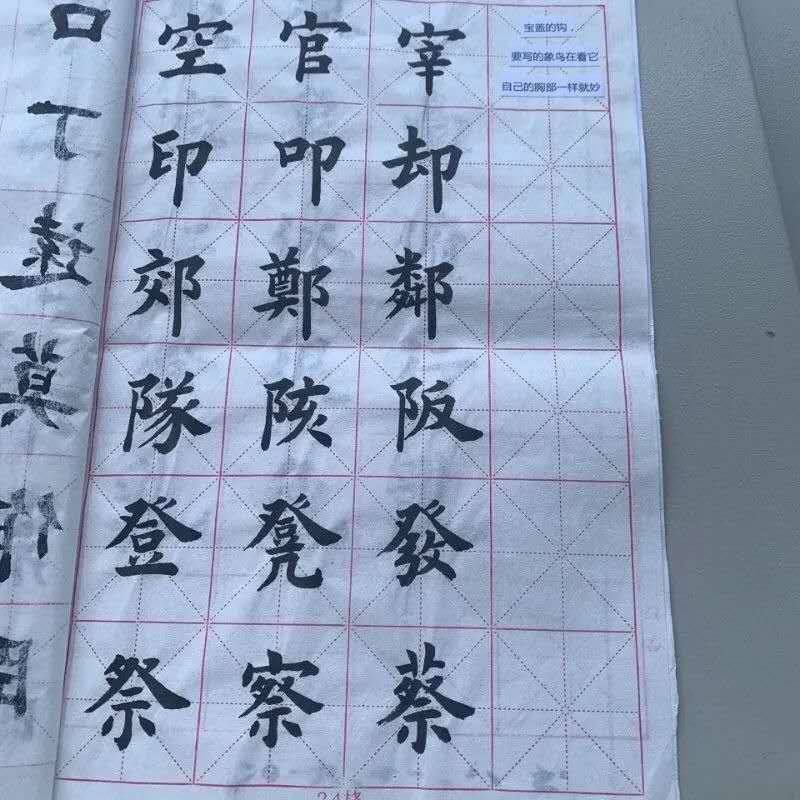 空 官 宰
宝盖的钩，
要写的象鸟在看它
自己的胸部一样就妙
印 叩 却
郊 鄭 鄰
隊 陔 阪
登 凳 發
祭 察 蔡
24格